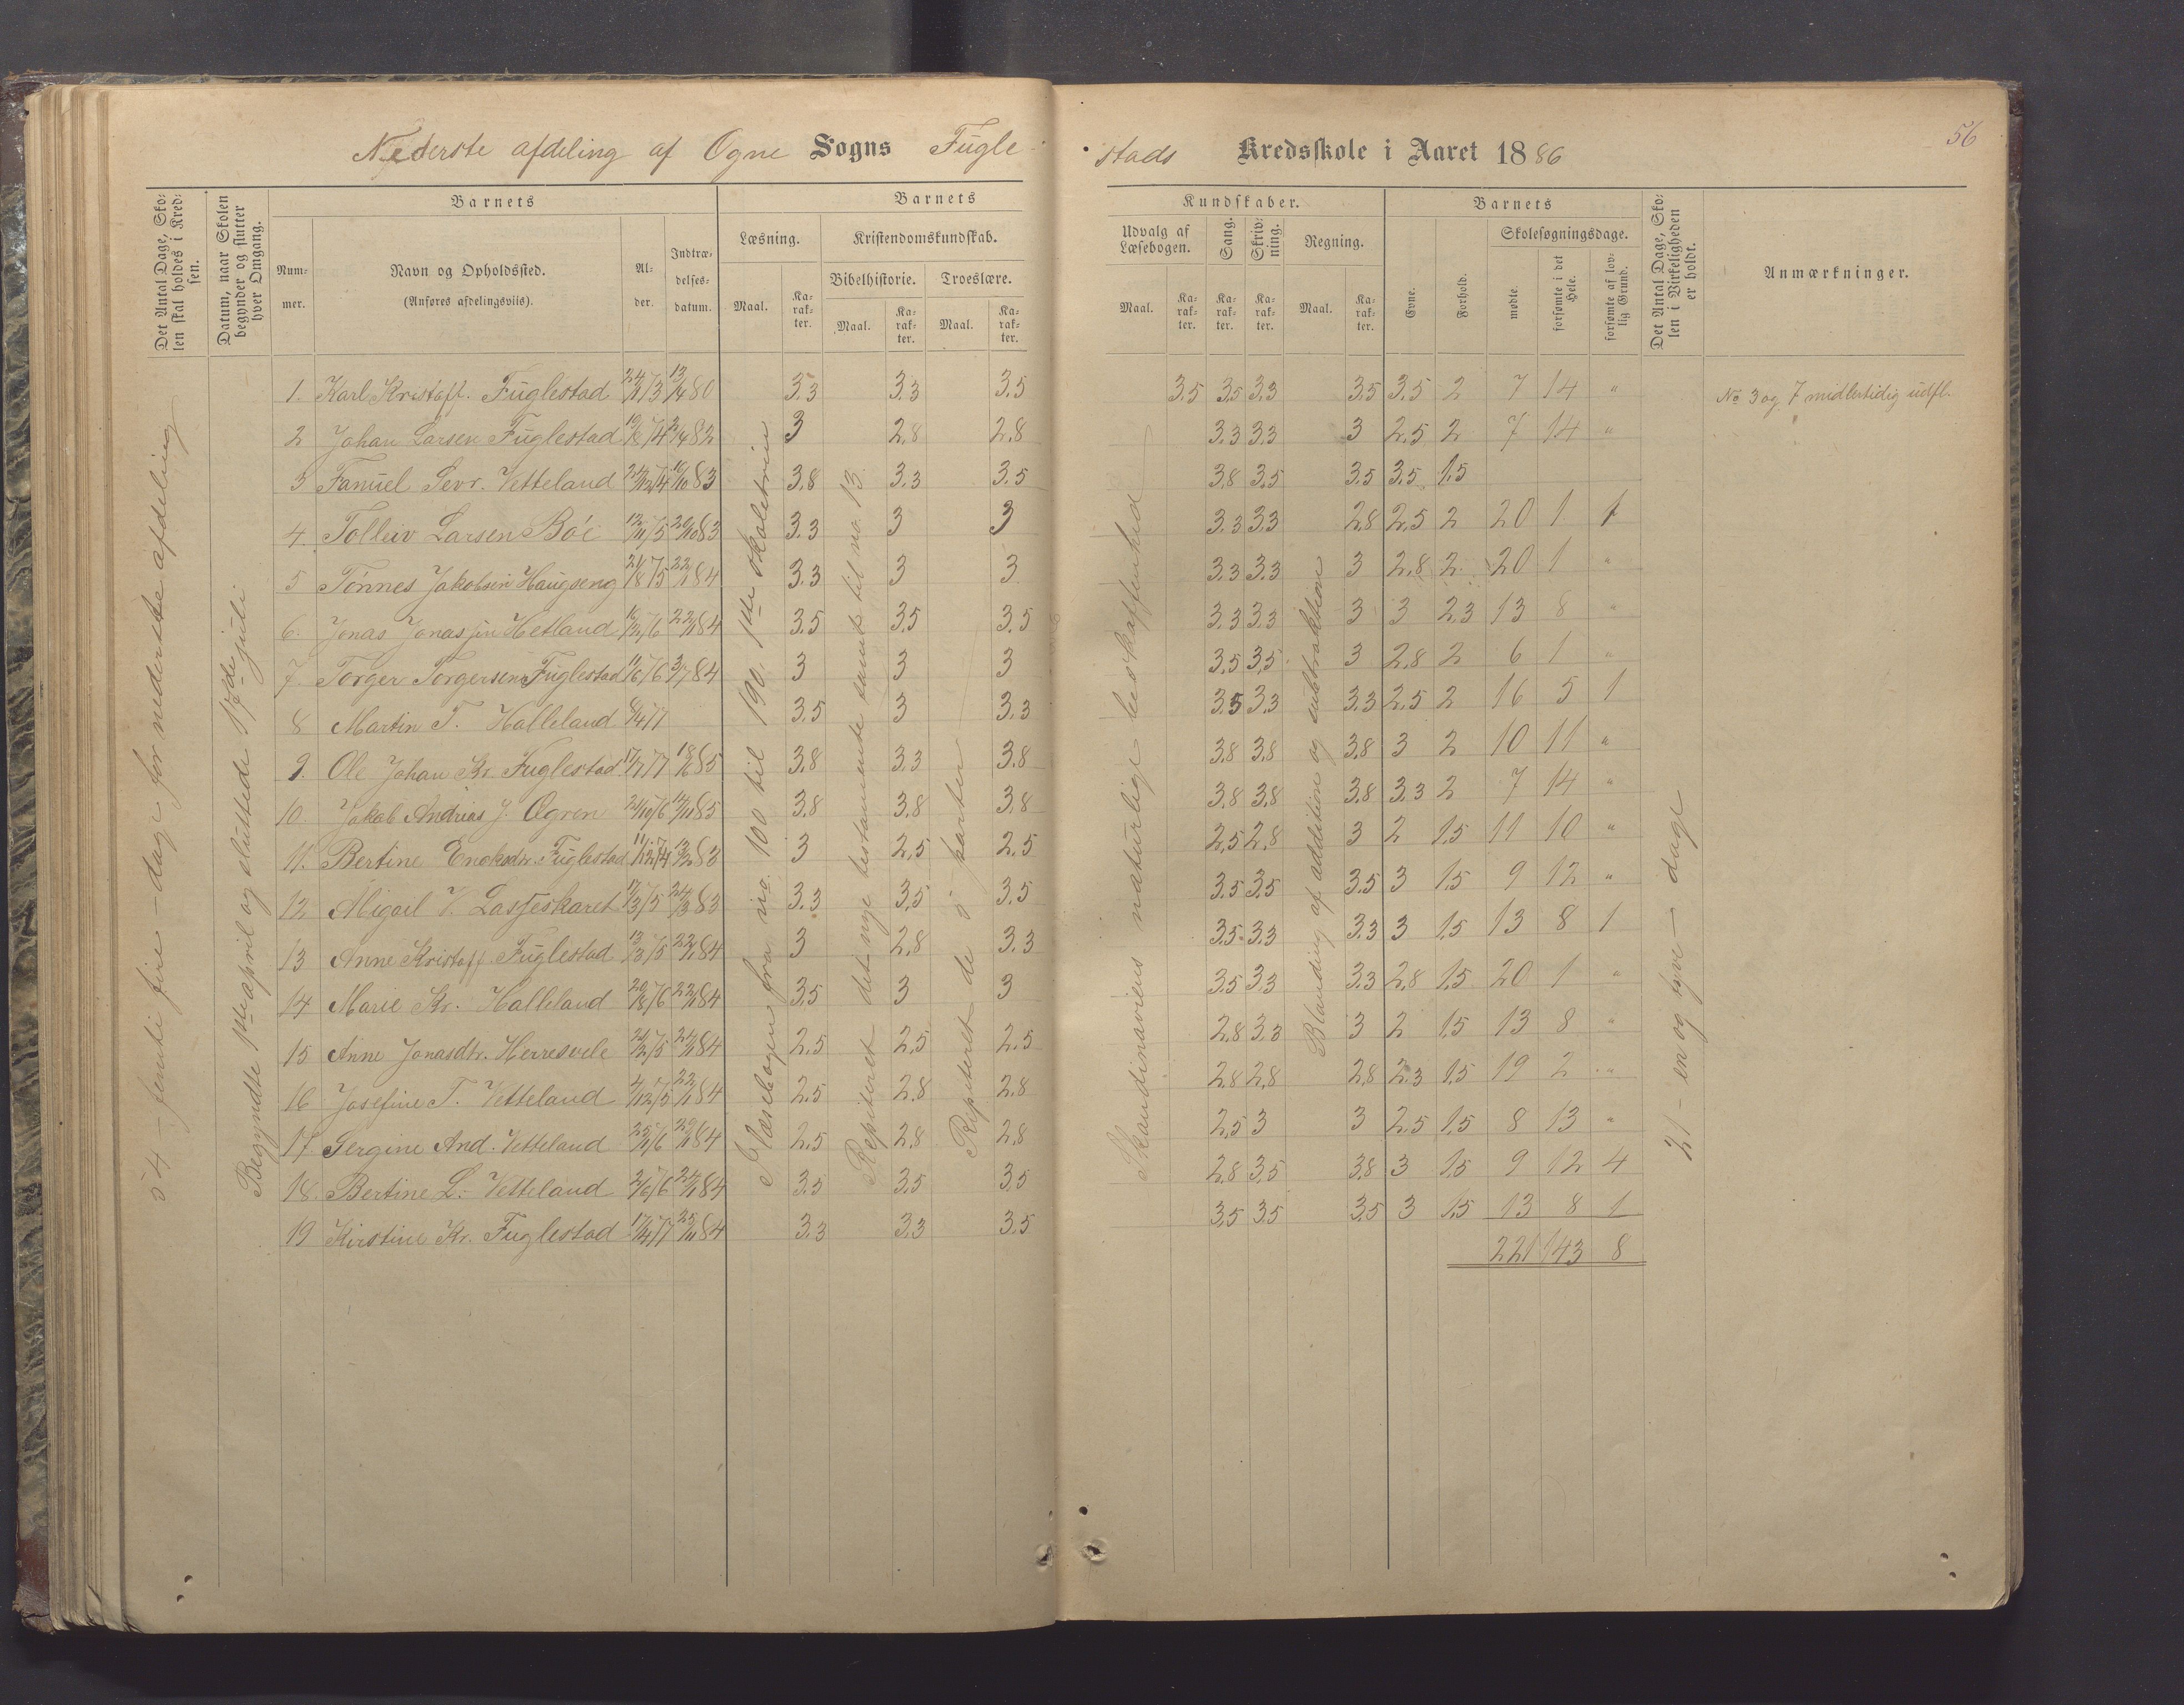 56
Nederste afdeling af Ogne Sogns Fugle-
stads Kredsskole i Aaret 1886
Det Antal Dage, Sko-
len skal holdes i Kred-
sen.
Datum, naar Skolen
begynder og slutter
hver Omgang.
Barnets
Num-
mer.
Navn og Opholdssted.
(Anføres afdelingsviis).
Al-
der.
Indtræ-
delses-
datum.
Barnets
Læsning.
Maal.
Ka-
rak-
ter.
Kristendomskundskab.
Bibelhistorie.
Maal.
Ka-
rak-
ter.
Troeslære.
Maal.
Ka-
rak-
ter.
Kundskaber.
Udvalg af
Læsebogen.
Maal.
Ka-
rak-
ter.
Sang.
Ka-
rak-
ter.
Skriv-
ning.
Ka-
rak-
ter.
Regning.
Maal.
Ka-
rak-
ter.
Barnets
Evne.
Forhold.
Skolesøgningsdage.
mødte.
forsømte i det
Hele.
forsømte af lov-
lig Grund.
Det Antal Dage, Sko-
len i Virkeligheden
er holdt.
Anmærkninger.
54 - femti fire - dage for nederste afdeling
Begyndte 1ste april og sluttede 17de juli
Læsebogen fra no. 100 til 190. 1ste skoletrin
Repiteret det nye testamente samt til no. 13.
Repiteret de 5 parter
Skandinaviens naturlige beskaffenhed
Blanding af addition og subtraktion
21 - en og tyve - dage
1. Karl Kristoff. Fuglestad 24/11/73 13/4 80 3.3 3.3 3.5 3.5 3.5 3.3 3.5 3.5 2 7 14 " No 3 og 7 midlertidig udfl.
2 Johan Larsen Fuglestad 2/4 82 3 2,8 2.8 3.3 3.3 3 2.5 2 7 14 "
3 Fanuel Sevr. Vetteland 24/12/74 16/10 83 3.8 3.3 3.5 3.8 3.5 3.5 3.5 1.5
4. Tolleiv Larsen Bøe 12/11/75 20/10 83 3.3 3 3 3.3 3.3 2.8 2.5 2 20 1 1
5 Tønnes Jakobsen Haugseng 21/8/75 22/1 84 3.3 3 3 3.3 3.3 3 2.8 2. 20 1 "
6. Jonas Jonassen Hetland 16/2/76 22/1 84 3.5 3.5 3.5 3.3 3.3 3 3 2.3 13 8 "
7. Torger Torgersen Fuglestad 11/6/76 3/7 84 3 3 3 3.5 3.5 3 2.8 2 6 1 "
8 Martin T. Halleland 8/4/77 3.5 3 3.3 3.5 3.3 3.3 2.5 2 16 5 1
9. Ole Johan Kr. Fuglestad 17/7/77 3.8 3.3 3.8 3.8 3.8 3.8 3 2 10 11 "
10. Jakob Andrias J. Ogren 21/10/76 3.8 3.8 3.8 3.8 3.8 3.8 3.3 2 7 14 "
11. Bertine Enoksdtr. Fuglestad 11/12/74 13/2 83 3 2,5 2.5 2,5 2,8 3 2 1.5 11 10 "
12 Abigael V. Lasseskaret 17/3/75 24/3 83 3.3 3.5 3.5 3.5 3.5 3.5 3 1.5 9 12 "
13 Anne Kristoff. Fuglestad 13/3/75 22/1 84 3 2.8 3.3 3.5 3.3 3.3 3 1.5 13 8 1
14 Marie Kr. Halleland 20/8/76 22/1 84 3.5 3 3 3.5 3.3 3.3 2.8 1.5 20 1 "
15 Anne Jonasdtr. Herresvele 84 2.5 2.5 2.5 2.8 3.3 3 2 1.5 13 8 "
16 Josefine T. Vetteland 4/12/75 22/1 84 2.5 2.8 2.8 2.8 2.8 2.8 2.3 1.5 19 2 "
17. Sergine And. Vetteland 84 2.5 2.8 2,8 2.5 3 3 2.5 1.5 8 13 "
18. Bertine L. Vetteland 2/6/76 84 3.5 3.5 3.5 2.8 3.5 3.8 3 1.5 9 12 4
19 Kirstine Kr. Fuglestad 84 3.3 3.3 3.5 3.5 3.5 3.5 3 1.5 13 8 1
221 143 8